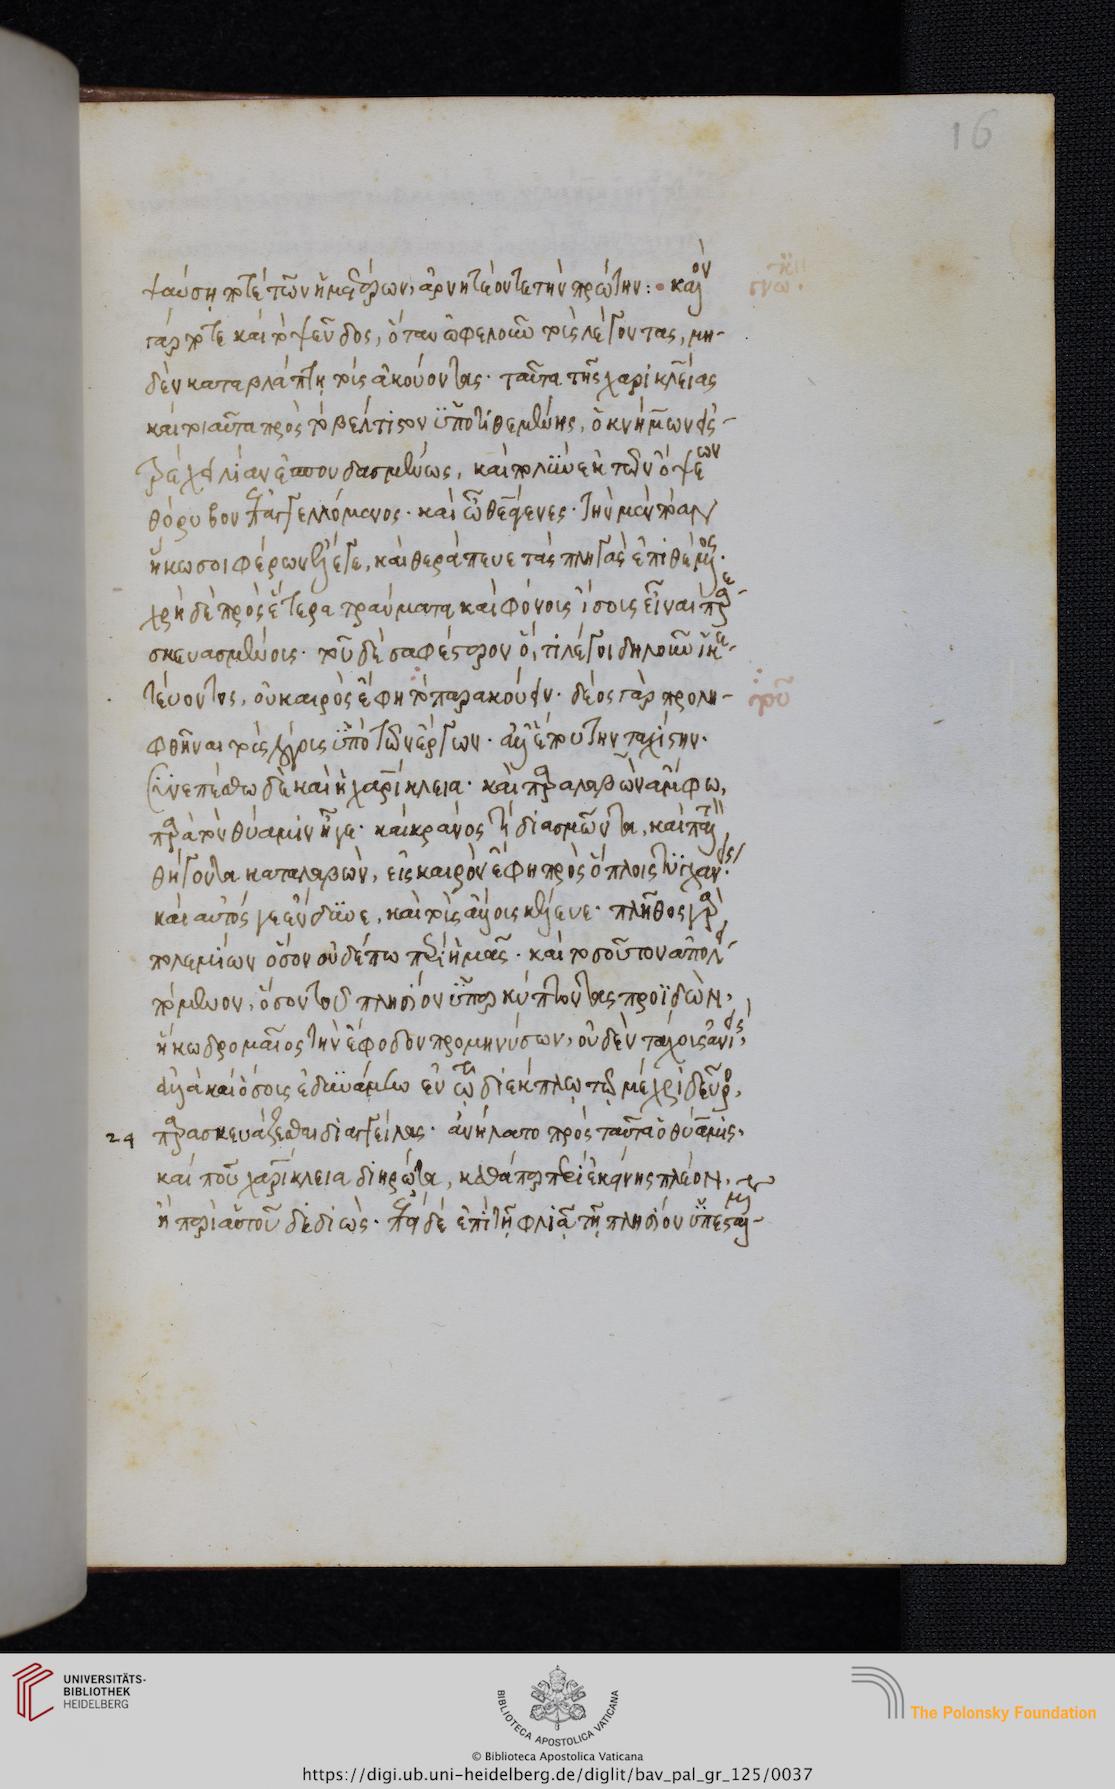 16
ψαύσῃ ποτὲ τῶν ἡμετέρων, ἀρνητέον τε τὴν πρώτην : καλὸν
γάρ ποτε καὶ τὸ ψεῦδος, ὅταν ὠφελοῦν τοὺς λέγοντας, μη-
δὲν καταβλάπτῃ τοὺς ἀκούοντας. ταῦτα τῆς χαρικλείας
καὶ τοιαῦτα πρὸς τὸ βέλτιστον ὑποτιθεμένης, ὁ κνήμων εἰσ-
τρέχει λίαν ἐσπουδασμένως, καὶ πολὺν ἐκ τῶν ὄψεων
θόρυβον ἐπαγγελλόμενος. καὶ ὦ θεάγενες. τὴν μὲν πόαν
ἥκω σοι φέρων ἔλεγε, καὶ θεράπευε τὰς πληγὰς ἐπιθέμενος.
χρὴ δὲ πρὸς ἕτερα τραύματα καὶ φόνοις ἴσοις εἶναι παρε-
σκευασμένοις. τοῦ δὲ σαφέστερον ὅ, τι λέγοι δηλοῦν ἱκε-
τεύοντος, οὐ καιρὸς ἔφη τὸ παρακούειν. δέος γὰρ προλη-
τοῦ
φθῆναι τοὺς λόγους ὑπὸ τῶν ἔργων. ἀλλ' ἕπου τὴν ταχίστην.
συνεπέσθω δὲ καὶ ἡ χαρίκλεια. καὶ παραλαβὼν ἄμφω,
παρὰ τὸν θύαμιν ἦγε. καὶ κράνος τι διασμῶντα, καὶ παλτὸν
θήγοντα καταλαβὼν, εἰς καιρὸν ἔφη πρὸς ὅπλοις τυγχάνεις.
καὶ αὐτός γε ἐνδύνε, καὶ τοῖς ἄλλοις κέλευε. πλῆθος γὰρ
πολεμίων ὅσον οὐδέπω περὶ ἡμᾶς. καὶ τοσοῦτον ἀπολει
πόμενον, ὅσον τοῦ πλησίον ὑπερκύπτοντας προϊδὼν,
ἥκω δρομαῖος τὴν ἔφοδον προμηνύσων, οὐδὲν τάχους ἀνεὶς,
ἀλλὰ καὶ ὅσοις ἐδυνάμην ἐν τῷ διέκπλῳ τῷ μέχρι δεῦρο,
24 παρασκευάζεσθαι διαγγείλας. ἀνήλατο πρὸς ταῦτα ὁ θύαμις,
καὶ ποῦ χαρίκλεια διηρώτα, καθάπερ περὶ ἐκείνης πλέον,
ἢ περὶ αὑτοῦ δεδιώς. ἐπεὶ δὲ ἐπὶ τῇ φλιᾷ τῇ πλησίον ὑπεσταλμέ-
UNIVERSITÄTS-
BIBLIOTHEK
HEIDELBERG
BIBLIOTECA APOSTOLICA VATICANA
The Polonsky Foundation
© Biblioteca Apostolica Vaticana
https://digi.ub.uni-heidelberg.de/diglit/bav_pal_gr_125/0037